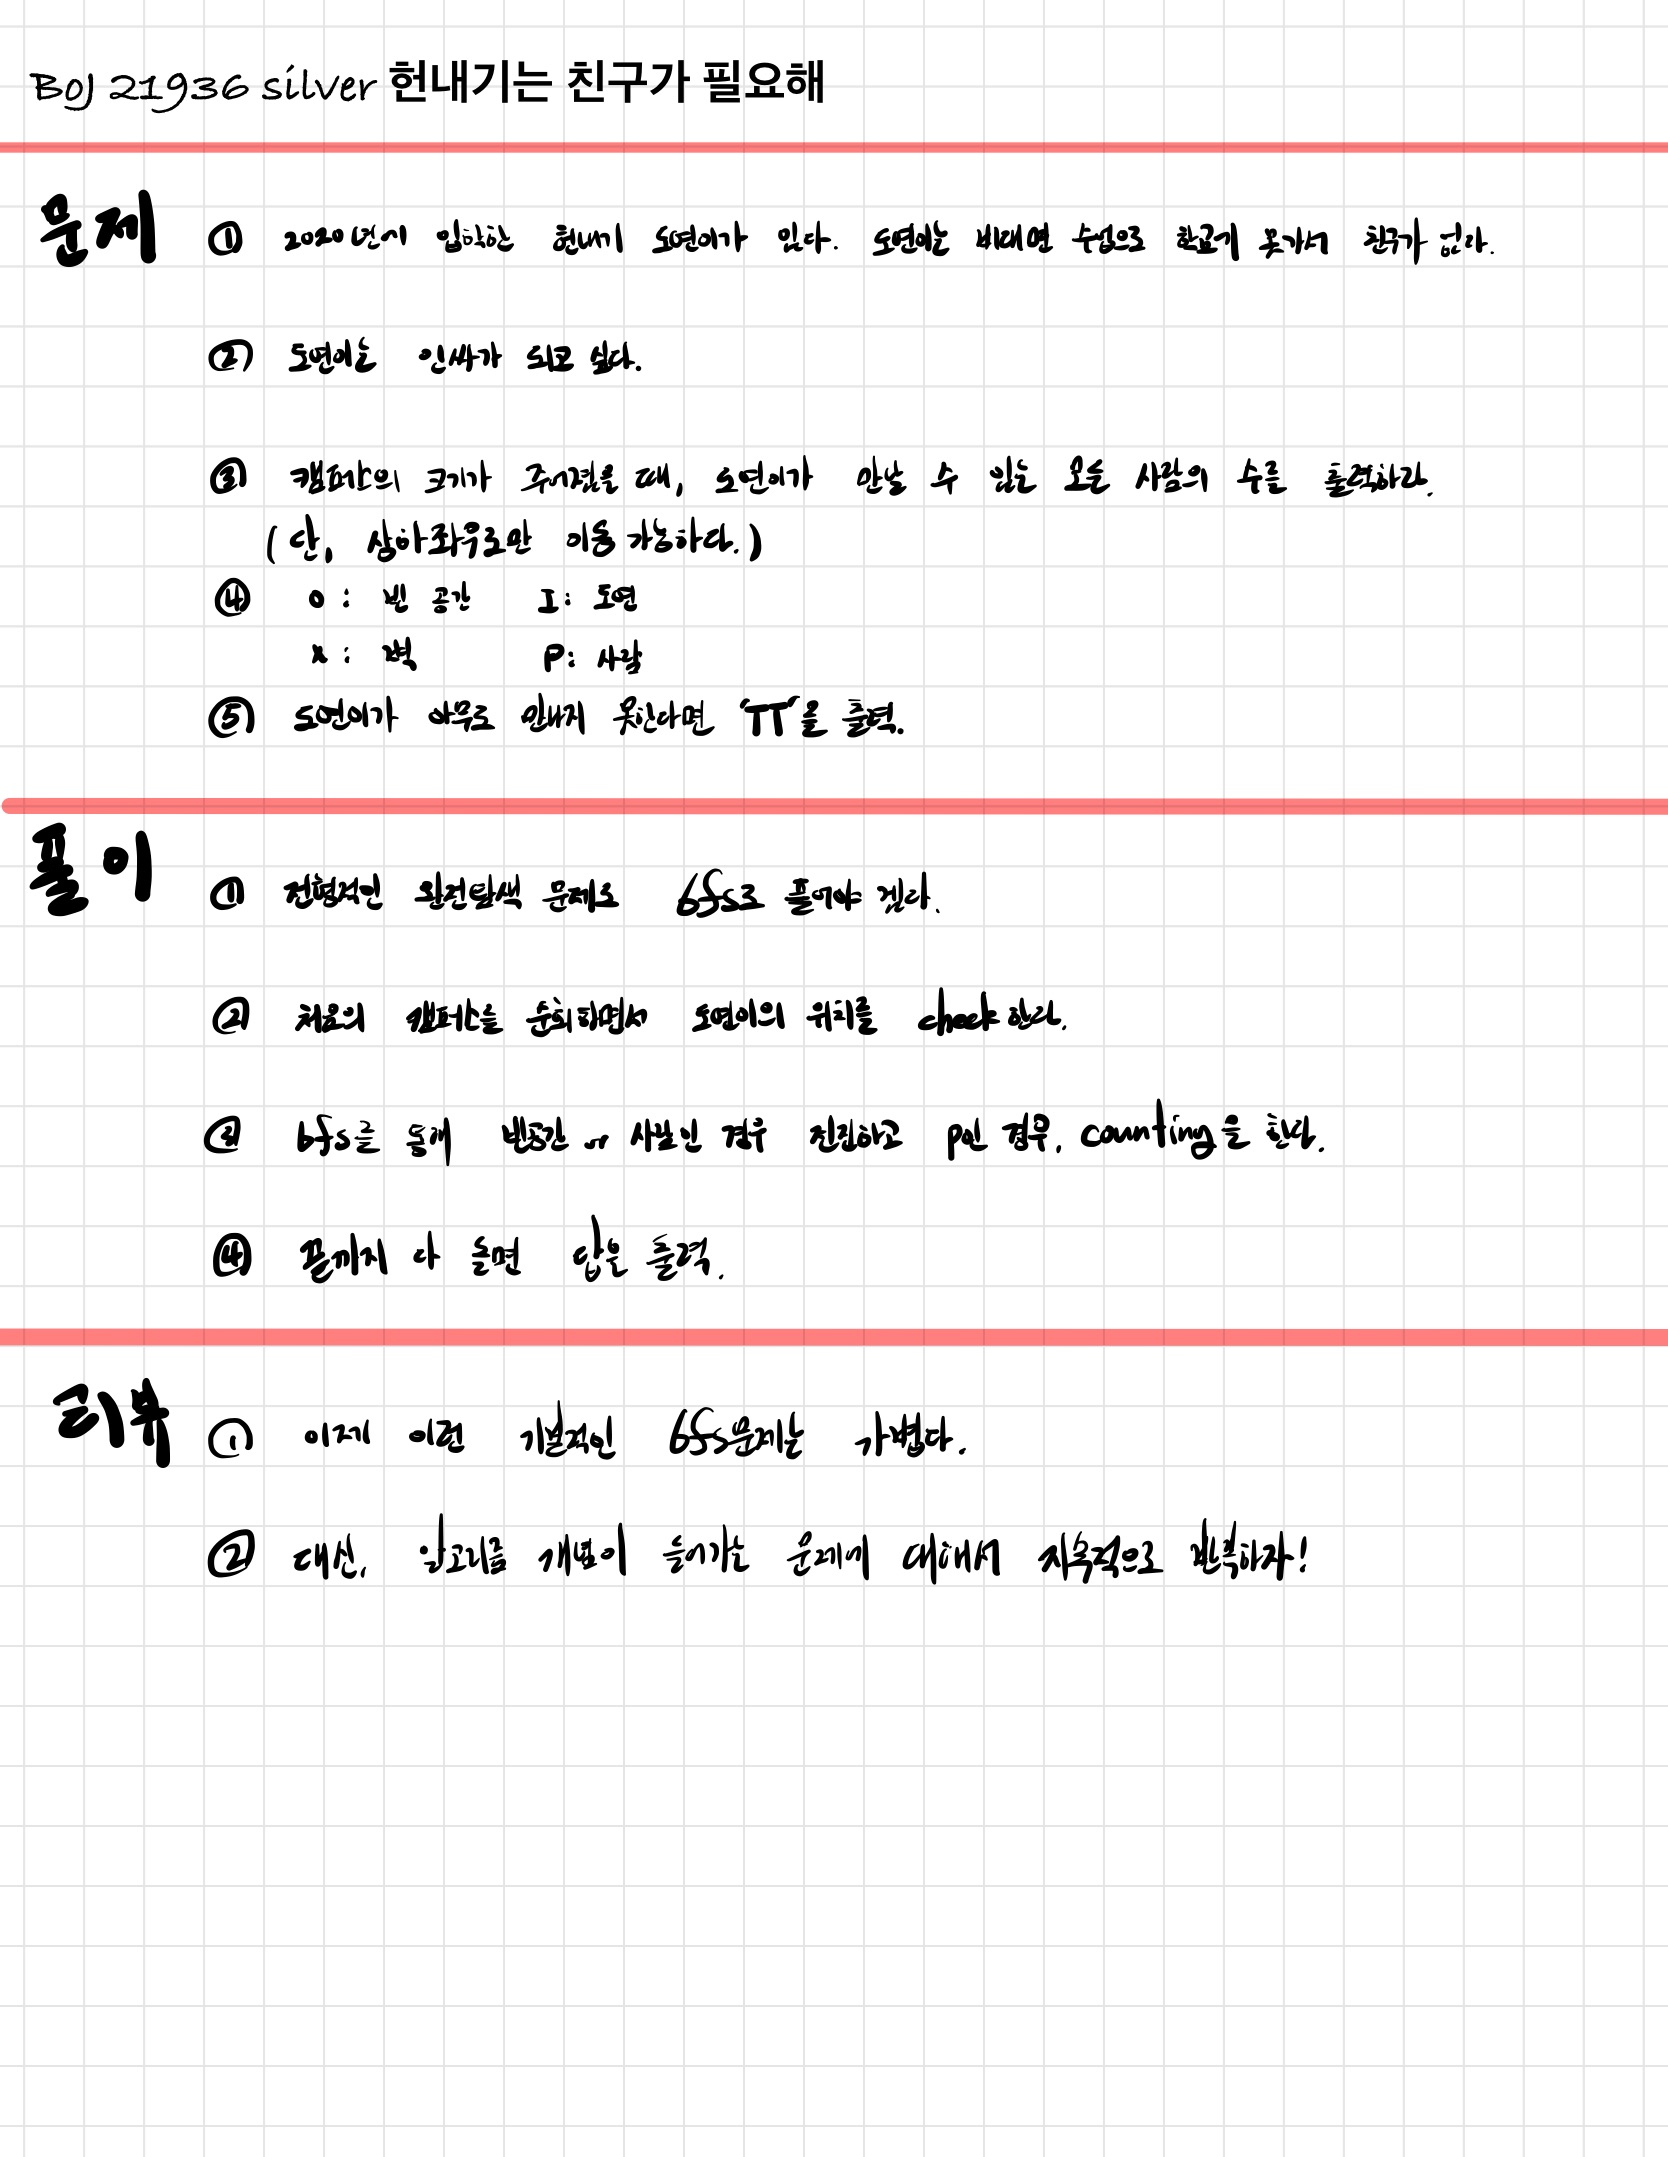 BOJ 21936 silver 헌내기는 친구가 필요해
문제
① 2020년에 입학한 헌내기 도연이가 있다. 도연이는 비대면 수업으로 학교에 못가서 친구가 없다.
② 도연이는 인싸가 되고 싶다.
③ 캠퍼스의 크기가 주어졌을 때, 도연이가 만날 수 있는 모든 사람의 수를 출력하라.
(단, 상하좌우로만 이동 가능하다.)
④ O : 빈 공간 I : 도연
X : 벽 P : 사람
⑤ 도연이가 아무도 만나지 못한다면 'TT'를 출력.
풀이
① 전형적인 완전탐색 문제로 bfs로 풀어야 겠다.
② 처음의 캠퍼스를 순회하면서 도연이의 위치를 check한다.
③ bfs를 통해 빈공간 or 사람인 경우 진입하고 P인 경우, counting을 한다.
④ 끝까지 다 돌면 답을 출력.
리뷰
① 이제 이런 기본적인 bfs문제는 가볍다.
② 대신, 알고리즘 개념이 들어가는 문제에 대해서 지속적으로 반복하자!